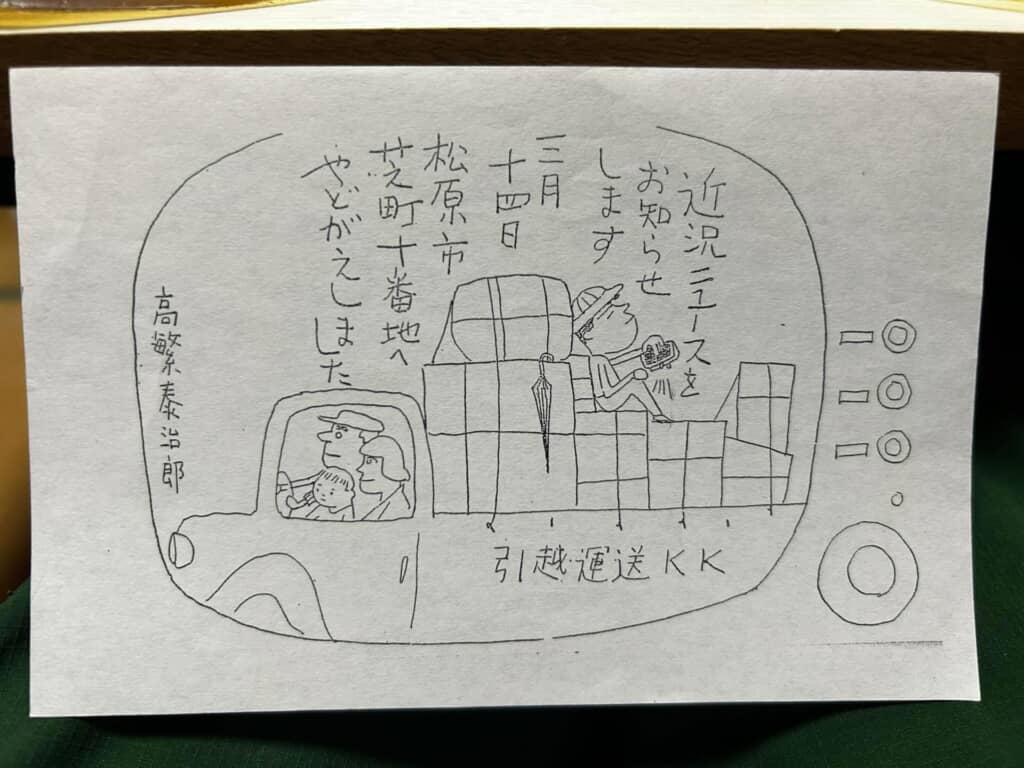 近況ニュースを
お知らせ
します
三月
十四日
松原市
芝町十番地へ
やどがえしました
高繁泰治郎
引越運送KK